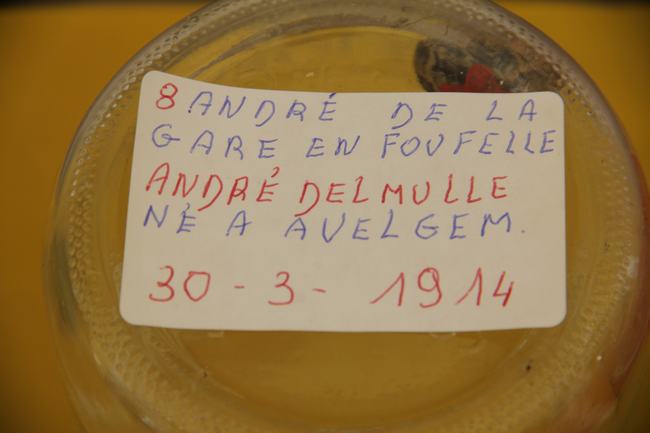 8 ANDRÉ DE LA
GARE EN FOUFELLE
ANDRÉ DELMULLE
NÉ A AVELGEM.
30-3-1914